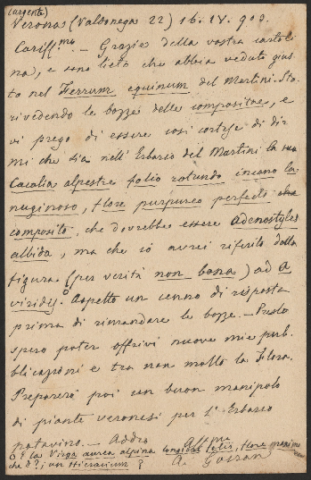 (urgente)
Verona (Valdonega 22) 16. IV. 903.
Cariss.mo — Grazie della vostra cartoli
na, e sono lieto che abbia veduto giu
sto nel Ferrum equinum del Martini. Sto
rivedendo le bozze delle compositae, e
vi prego di essere così cortese di dir
mi che sia nell'Erbario del Martini la sua
Cacalia alpestre folio rotundo incano la
nuginoso, flore purpureo perfecto
composito, che dovrebbe essere Adenostyles
albida, ma che io avrei riferito dalla
figura (per verità non bona) ad A
viridis. Aspetto un cenno di risposta
prima di rimandare le bozze. — Presto
spero poter offrirvi nuove mie pub
blicazioni e tra non molto la Filosa.
Preparerò poi un buon manipolo
di piante veronesi per l'Erbario
patavino. — Addio
Aff.mo
A. Goiran
E la Virga aurea alpina longioribus foliis, flore maximo
che è? un Hieracium?